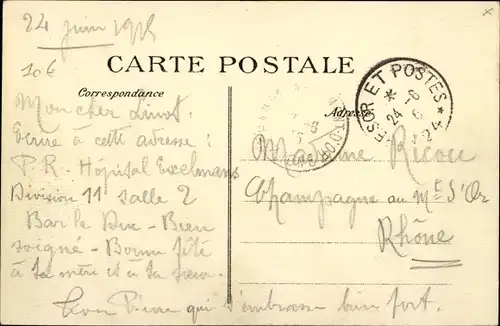 24 juin 1915
10€
CARTE POSTALE
Correspondance
Adresse
TRESOR ET POSTES
24-6
* 24 *
Mon cher Linot.
Ecrire à cette adresse :
P.R. - Hôpital Exelmans
Division 11 salle 2
Bar le Duc - Bien
soigné - Bonne fête
à ta mère et à ta sœur.
Ton Pierre qui t'embrasse bien fort.
Madame Ricou
Champagne au Mt d'Or
Rhône